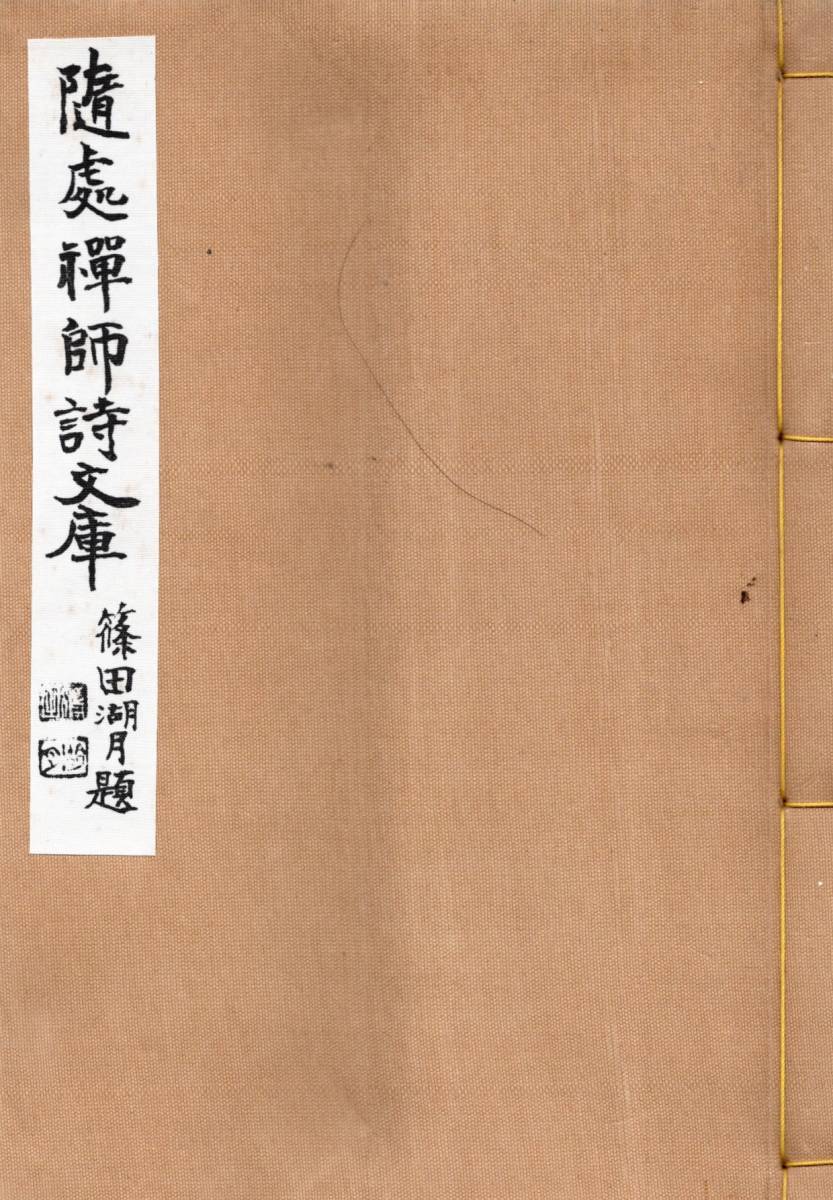 隨處禪師詩文庫
篠田湖月題